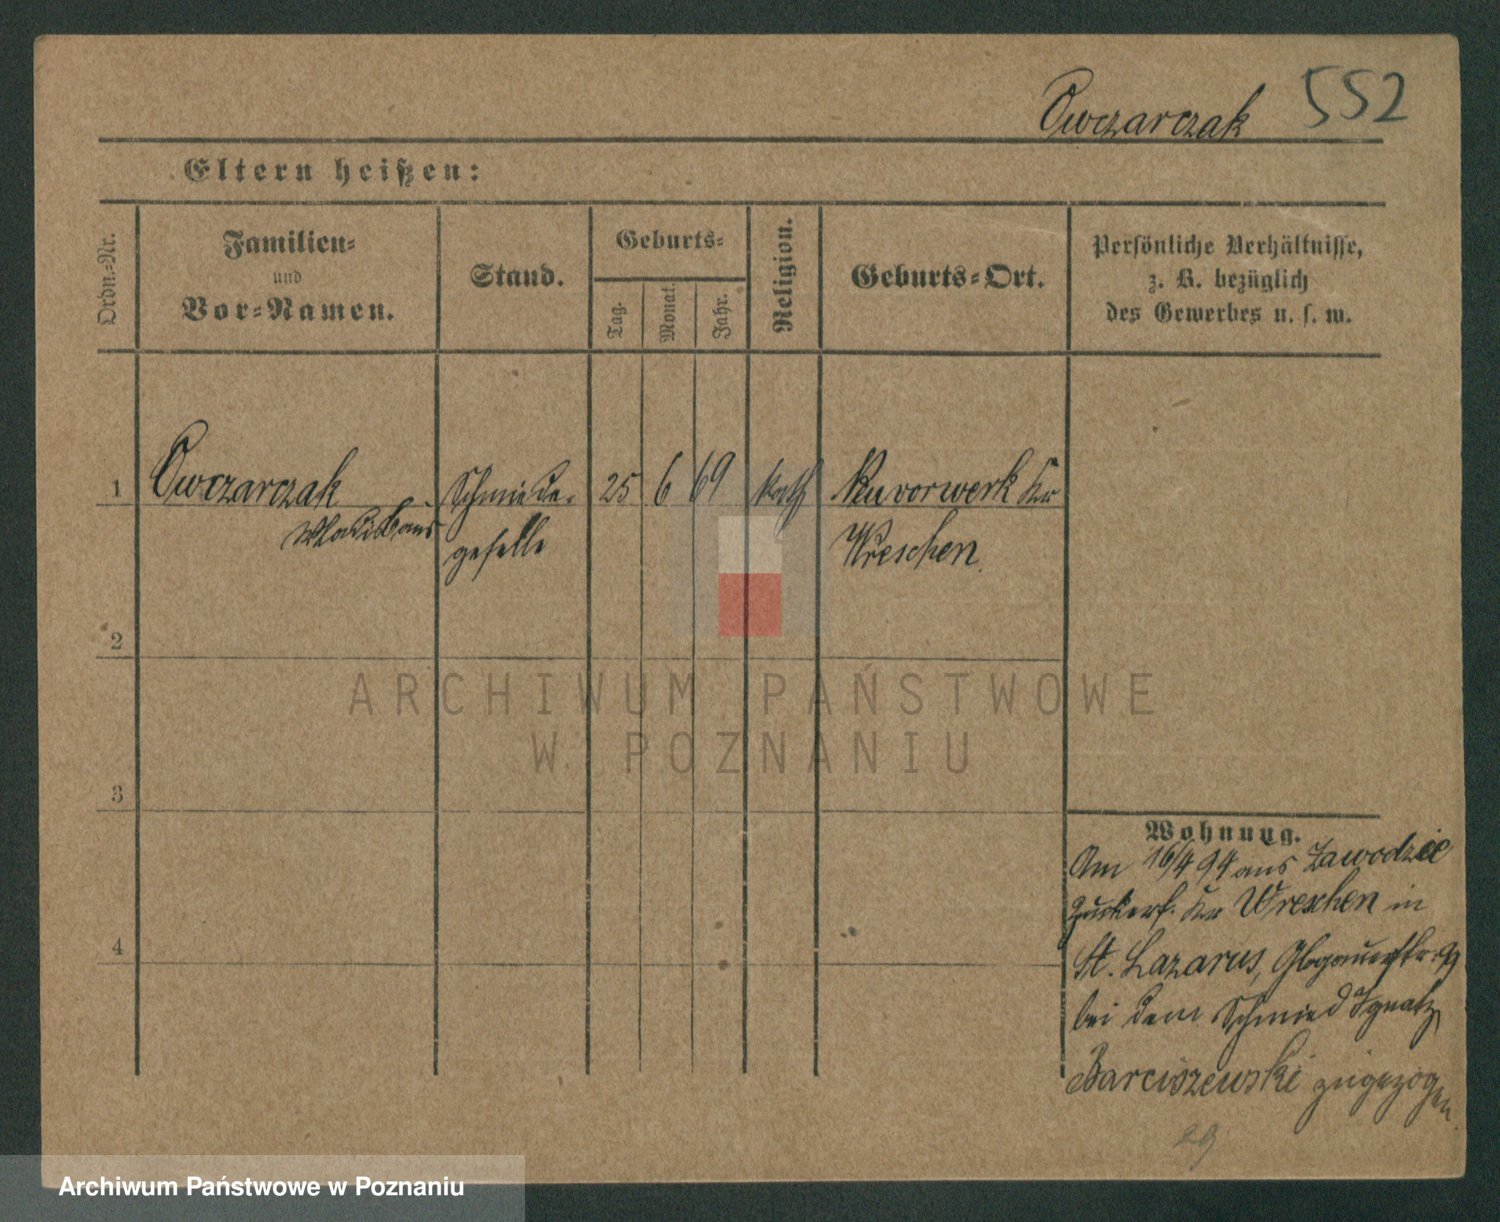 Owczarczak 552
Eltern heißen:
Ordn.-Nr.
Familien-
und
Vor-Namen.
Stand.
Geburts-
Tag.
Monat.
Jahr.
Religion.
Geburts-Ort.
Persönliche Verhältnisse,
z. B. bezüglich
des Gewerbes u. s. w.
1 Owczarczak Schmiede- 25 6 69 kath Neuvorwerk Kr
Wladislaus geselle Wreschen.
2
3
4
Wohnung.
Am 16/4 94 aus Zawodzie
Zuckerf. Kr Wreschen in
St. Lazarus, Glogauerstr.
bei dem Schmied Ignatz
Barciszewski zugezogen.
29
ARCHIWUM PAŃSTWOWE
W POZNANIU
Archiwum Państwowe w Poznaniu